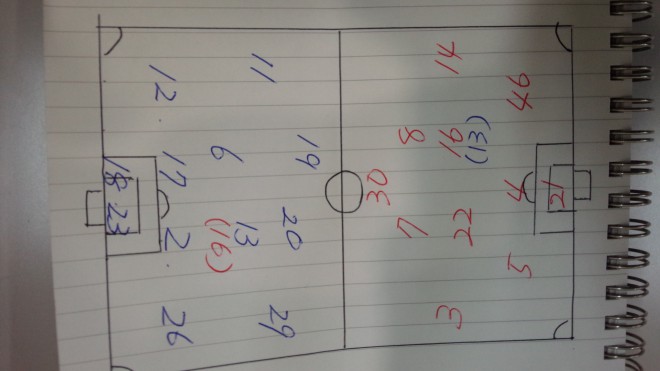 21
46 4 5
(13)
14 16 22 3
8 7
30
19
20 29
11
6 13
(16)
12 17 2 26
18 23